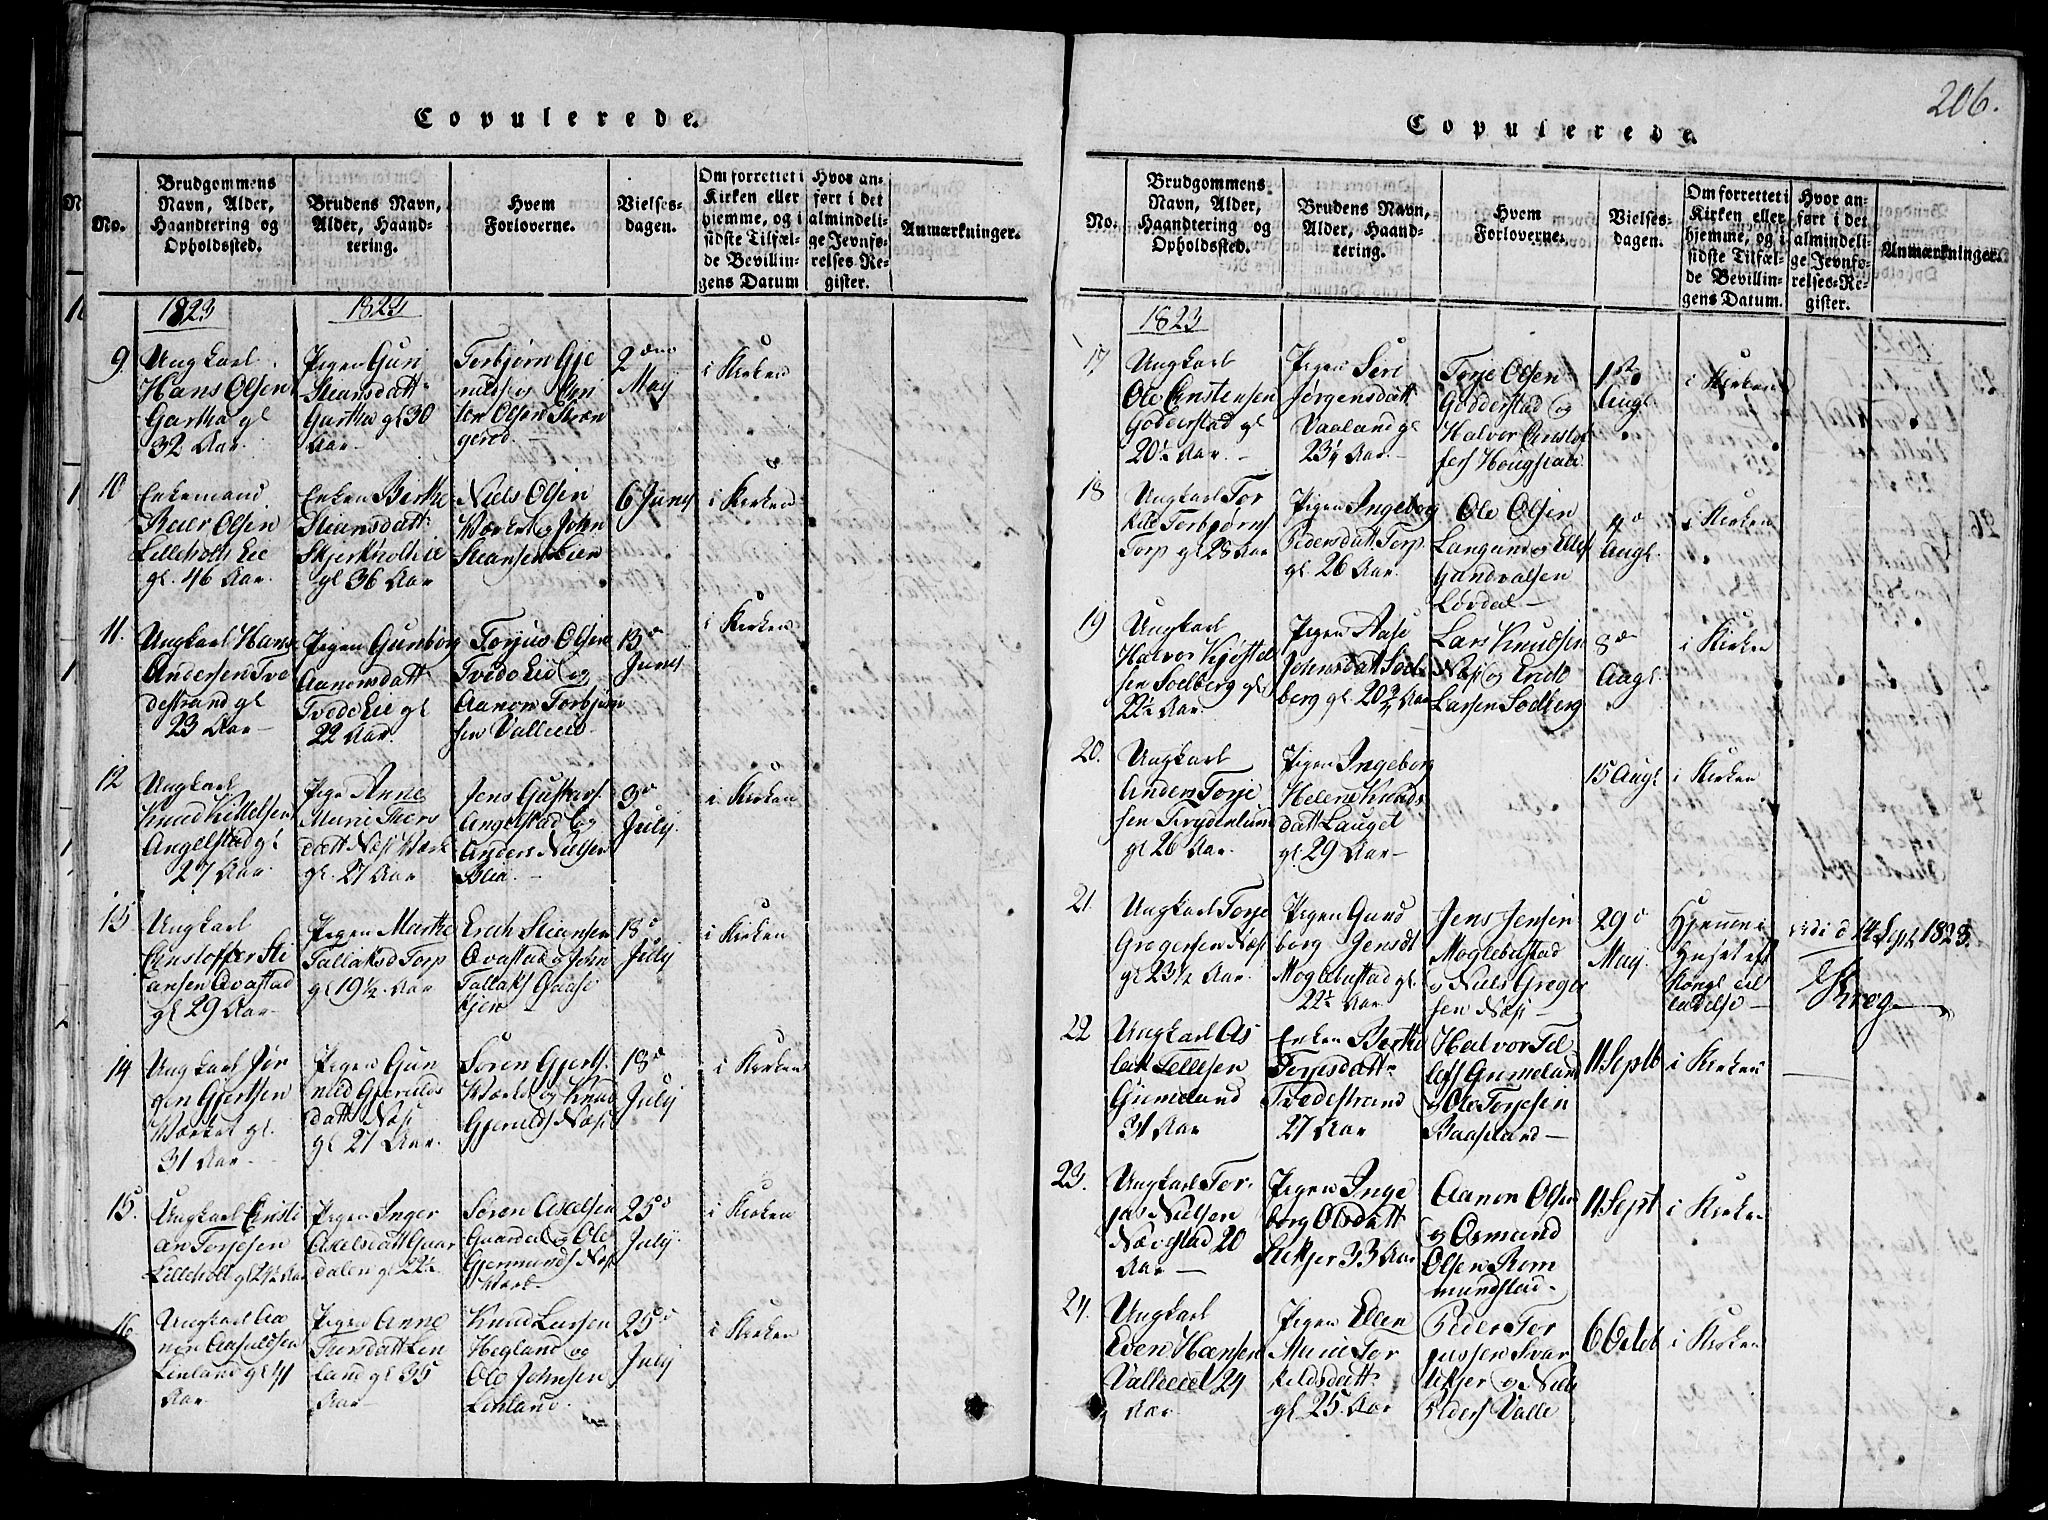 Copulerede.
No.
Brudgommens
Navn, Alder,
Haandtering og
Opholdssted.
Brudens Navn,
Alder, Haand-
tering.
Hvem
Forloverne.
Vielses-
dagen.
Om forrettet i
Kirken eller
hjemme, og i
sidste Tilfæl-
de Bevillin-
gens Datum
Hvor an-
ført i det
almindeli-
ge Jevnfø-
relses-Re-
gister.
Anmærkninger.
1823
1823
9.
Ungkarl
Hans Olsen
Gartha gl
32 Aar
Pigen Guri
Steansdatt
Gartha gl 30
Aar
Torbjørn Gje
Olsen
gerød
2den
Maij
i Kirken
10
Enkemand
Reier Olsen
Lilleholt Eie
gl. 46 Aar.
Enken Berthe
Steansdatt
Skjerkholt Eie
gl 36 Aar
Niels Olsen
Værket og John
Steansen Lien
6 Junij
i Kirken
11.
Ungkarl Hans
Andersen Tve
destrand gl
23 Aar
Pigen Gunborg
Aanonsdatt
Tvede Eie gl
22 Aar.
Torjus Olsen
Tvede Eie og
Aanon Torbjørn
sen Valleeie
13de
Junij
i Kirken
12
Ungkarl
Knud Kittelsen
Angelstad gl
27 Aar.
Pige Anne
Marie Thors
datt Næs Værk
gl. 27 Aar
Jens Gustavs
Angelstad og
Anders Nielsen
3de
Julij.
i Kirken
13
Ungkarl
Christoffer Sti
ansen Qvastad
gl 29 Aar
Pigen Marthe
Tallaksd Torp
gl 19½ Aar
Erich Steansen
Qvastad og John
Tallaks Gaase
kjen
18de
Julij
i Kirken
14
Ungkarl Jør
gen Gjertsen
Værket gl.
31 Aar
Pigen Gun
nild Gjerulds
datt Næs
gl 27 Aar.
Søren Gjerts
Værket og Knud
Gjerulds Næs
18de
Julij
i Kirken
15.
Ungkarl Christi
an Torjesen
Lilleholt gl 24½ Aar
Pigen Inger
Axelsdatt Gaar
dalen gl 22½
Søren Axelsen
Gaardal og Ole
Gjermunds Næs
Værk
25de
Julij
i Kirken
16
Ungkarl Aa
non Aasuldsen
Linland gl 41
Aar
Pigen Anne
Thorsdatt Lin
land gl 35
Aar
Knud Larsen
Hegland og
Ole Johnsen
Linland.
25de
Julij
i Kirken
206.
Copulerede.
No.
Brudgommens
Navn, Alder,
Haandtering og
Opholdssted.
Brudens Navn,
Alder, Haand-
tering.
Hvem
Forloverne.
Vielses-
dagen.
Om forrettet i
Kirken eller
hjemme, og i
sidste Tilfæl-
de Bevillin-
gens Datum.
Hvor an-
ført i det
almindeli-
ge Jevnfø-
relses-Re-
gister.
Anmærkninger.
1823
17
Ungkarl
Ole Christensen
Godderstad gl
20½ Aar.
Pigen Siri
Jørgensdatt
Vaaland gl
23¼ Aar.
Torje Olsen
Godderstad og
Halvor Christof
fers Hougstad
1ste
Augl
i Kirken
18
Ungkarl Tor
kild Torbjørns
Torp gl 28 Aar
Pigen Ingeborg
Pedersdatt Torp
gl. 26 Aar.
Ole Olsen
Langand og Ellef
Gundvalsen
Løvdal
4de
Augl.
i Kirken
19
Ungkarl
Halvor Kjøstel
sen Solberg gl
22½ Aar.
Pigen Aase
Johnsdatt Sol
berg gl. 20¾ Aar
Lars Knudsen
Næs og Erich
Larsen Solberg
8de
Augl.
i Kirken
20.
Ungkarl
Anders Torje
sen Frydenlund
gl 26 Aar.
Pigen Ingeborg
Helene Knuds
datt Lauget
gl. 29 Aar
15 Augl
i Kirken
21.
Ungkarl Torje
Gregersen Næs
gl 23½ Aar.
Pigen Gund
borg Jensdt
Moglebustad gl.
22½ Aar
Jens Jensen
Moglebustad
og Niels Greger
sen Næs
29de
Maij.
Hjemme i
Huset eft
Kongl til
ladelse
d 14 Sept 1823.
Krog
22
Ungkarl As
lak Tellefsen
Gumeland
31 Aar
Enken Berthe
Torjesdatt
Tvedestrand
27 Aar
Halvor Tel
lefs Gumeland
og Ole Torjesen
Baasland
11 Septb
i Kirken
23.
Ungkarl Tor
jus Nielsen
Nævestad 20
Aar
Pigen Inge
borg Olsdatt
Ukjer 33 Aar
Aanon Olsen
og Osmund
Olsen Rom
mundstad
11 Sept
i Kirken
24.
Ungkarl
Even Hansen
Valleeiet 24
Aar
Pigen Ellen
Marie Tor
kildsdatt
gl. 25. Aar
Peder Tor
jussen Svar
Ukjer og Niels
Peders Valle
6 Octob
i Kirken